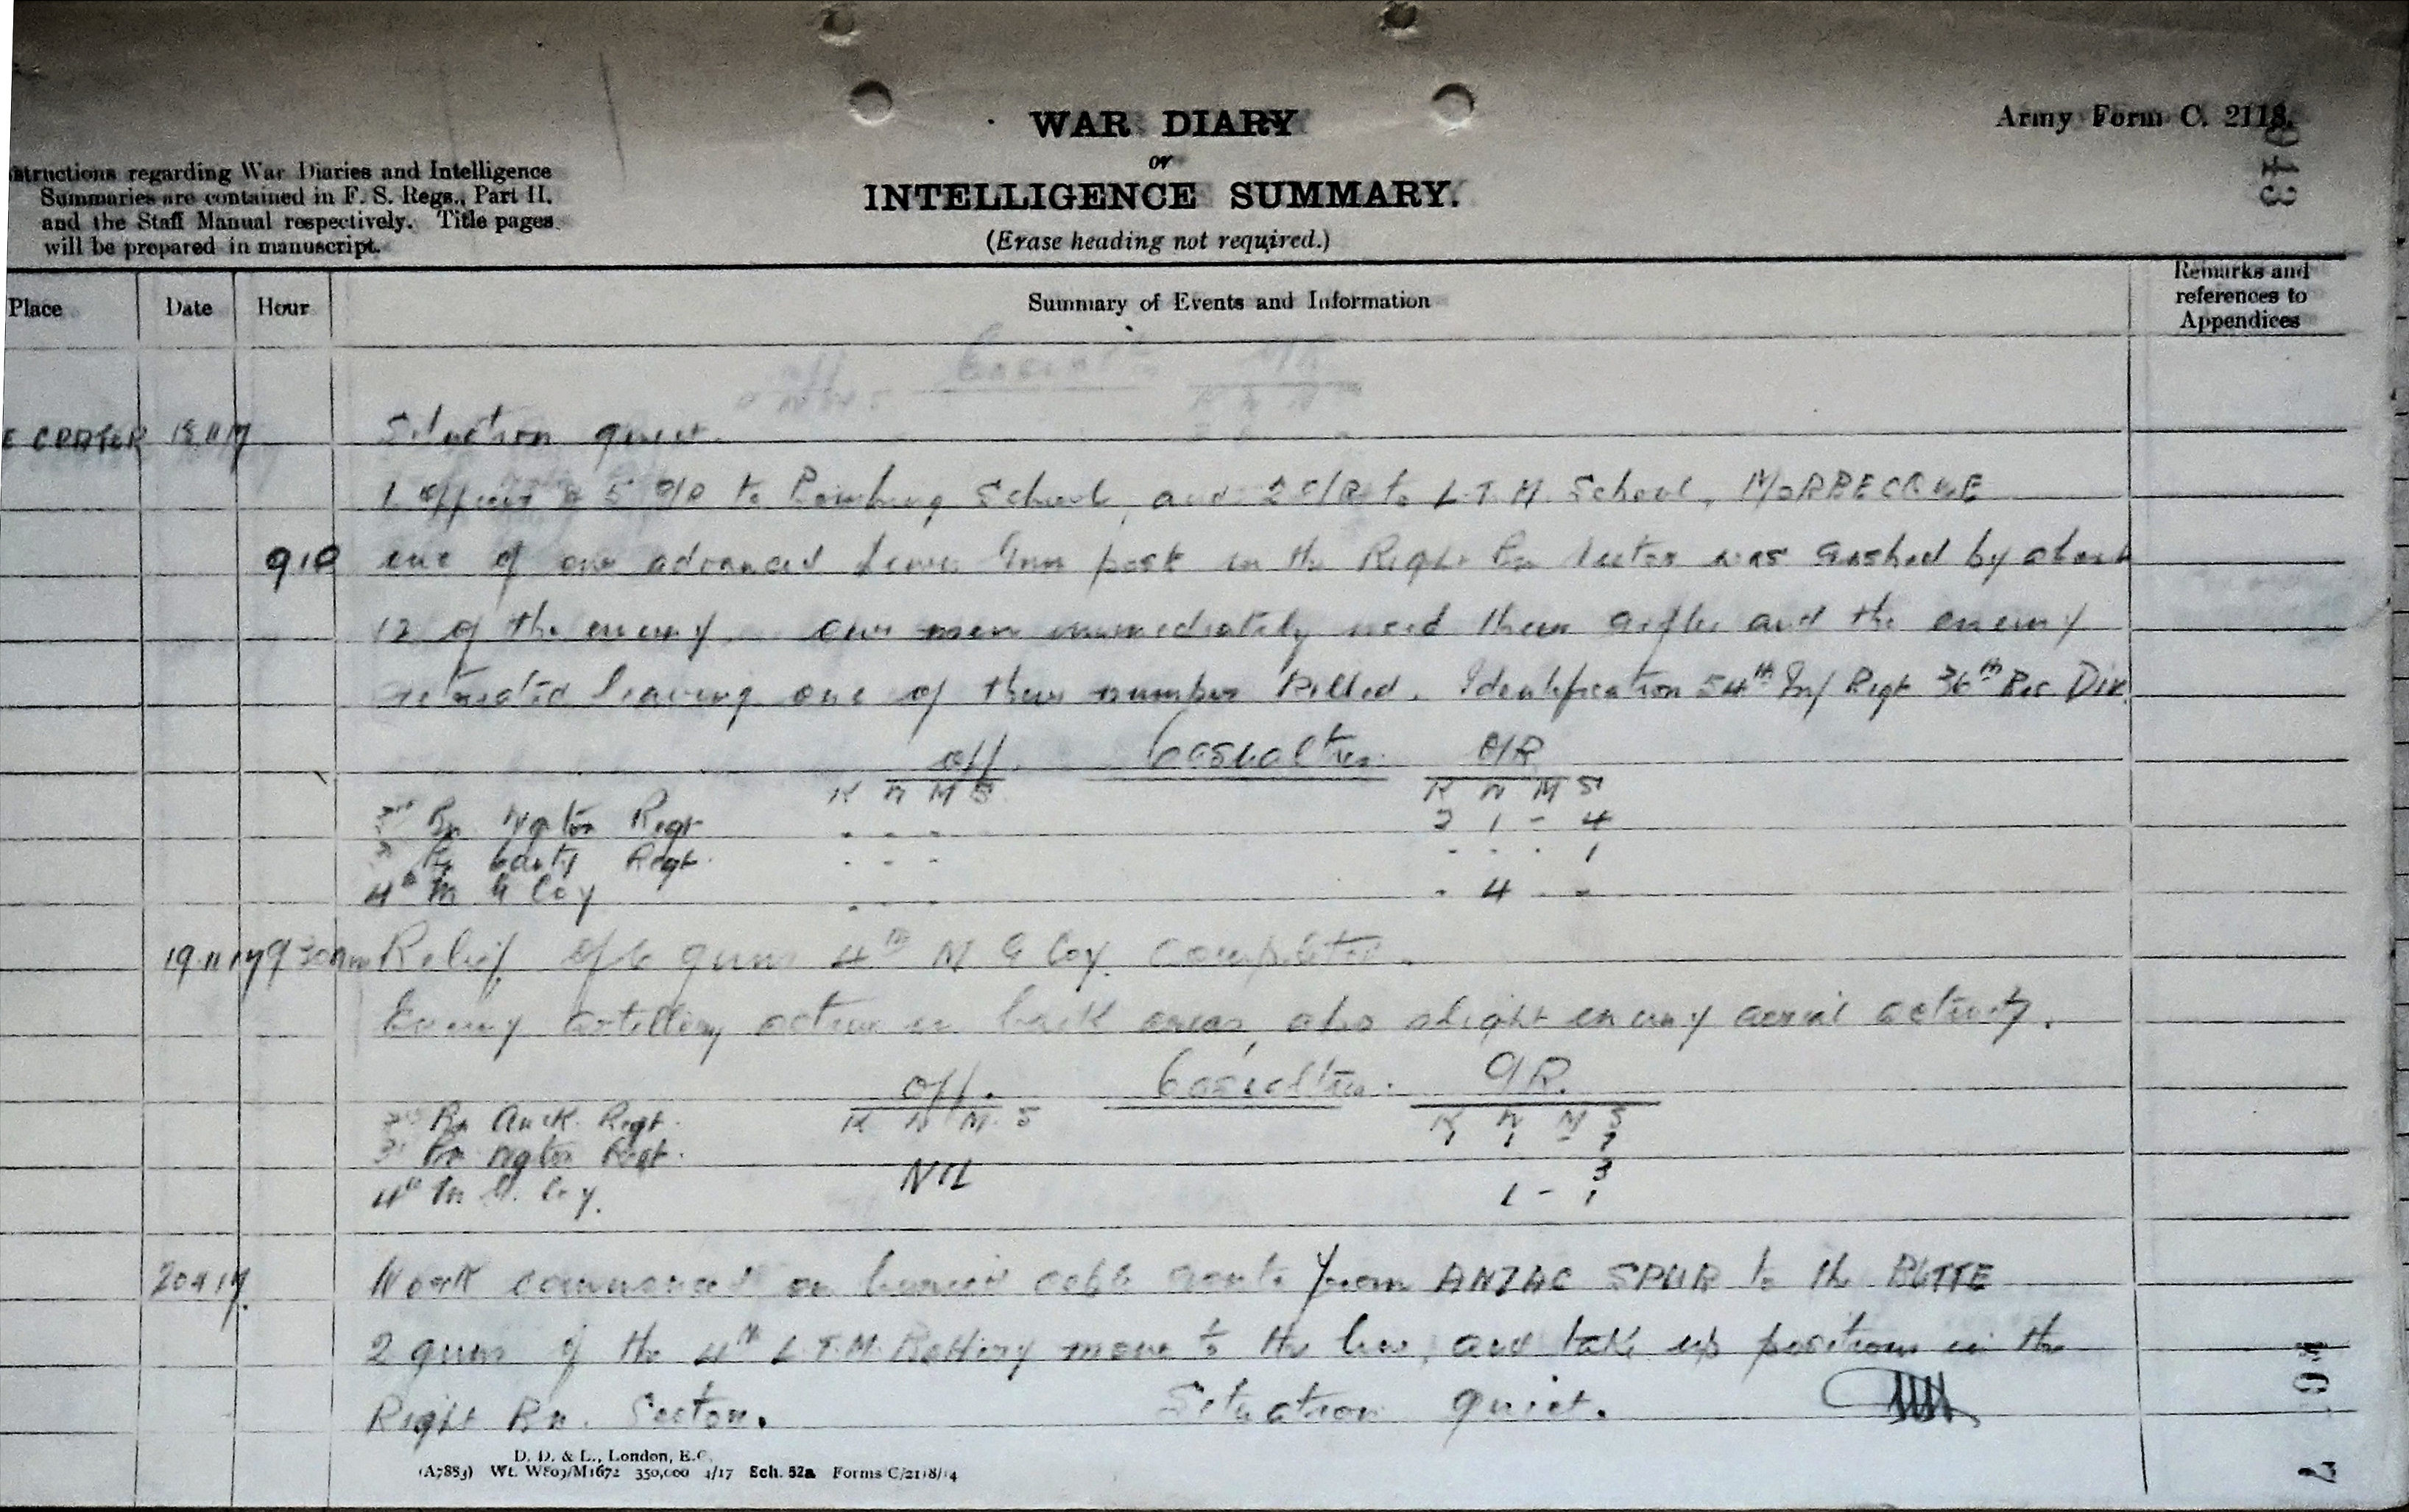 WAR DIARY
or
INTELLIGENCE SUMMARY.
(Erase heading not required.)
Army Form C. 2118.
structions regarding War Diaries and Intelligence
Summaries are contained in F. S. Regs., Part II.
and the Staff Manual respectively. Title pages
will be prepared in manuscript.
Place Date Hour Summary of Events and Information Remarks and
references to
Appendices
E CRATER 18.11.17 Situation quiet.
1 Officer & 5 O/R to Bombing School, and 2 O/R to L.T.M. School, MORBECQUE
9.10 one of our advanced Lewis Gun post in the Right Bn Sector was rushed by about
12 of the enemy. Our men immediately used their rifles and the enemy
retreated leaving one of their number killed. Identification 54th Inf Regt 36th Res Div.
Off Casualties. O/R
K W M S K W M S
3rd Bn Wgton Regt - - - 2 1 - 4
3 Bn Canty Regt. - - - - - - 1
4th M G Coy - - - - 4 - -
19.11.17 9.30am Relief of 6 guns 4th M G Coy. Completed.
Enemy artillery active in back areas, also slight enemy aerial activity.
Off. Casualties. O/R.
K W M S K W M S
3rd Bn Auck. Regt. 1 1 - 7
3rd Bn Wgton Regt. 3
4th M. G. Coy. NIL 1 - 1
20.11.17. Work commenced on buried cable route from ANZAC SPUR to the BUTTE
2 guns of the 4th L.T.M. Battery move to the line, and take up positions in the
Right Bn. Sector. Situation quiet.
D. D. & L., London, E.C.
(A7883) Wt. W809/M1672 350,000 4/17 Sch. 52a Forms C/2118/14